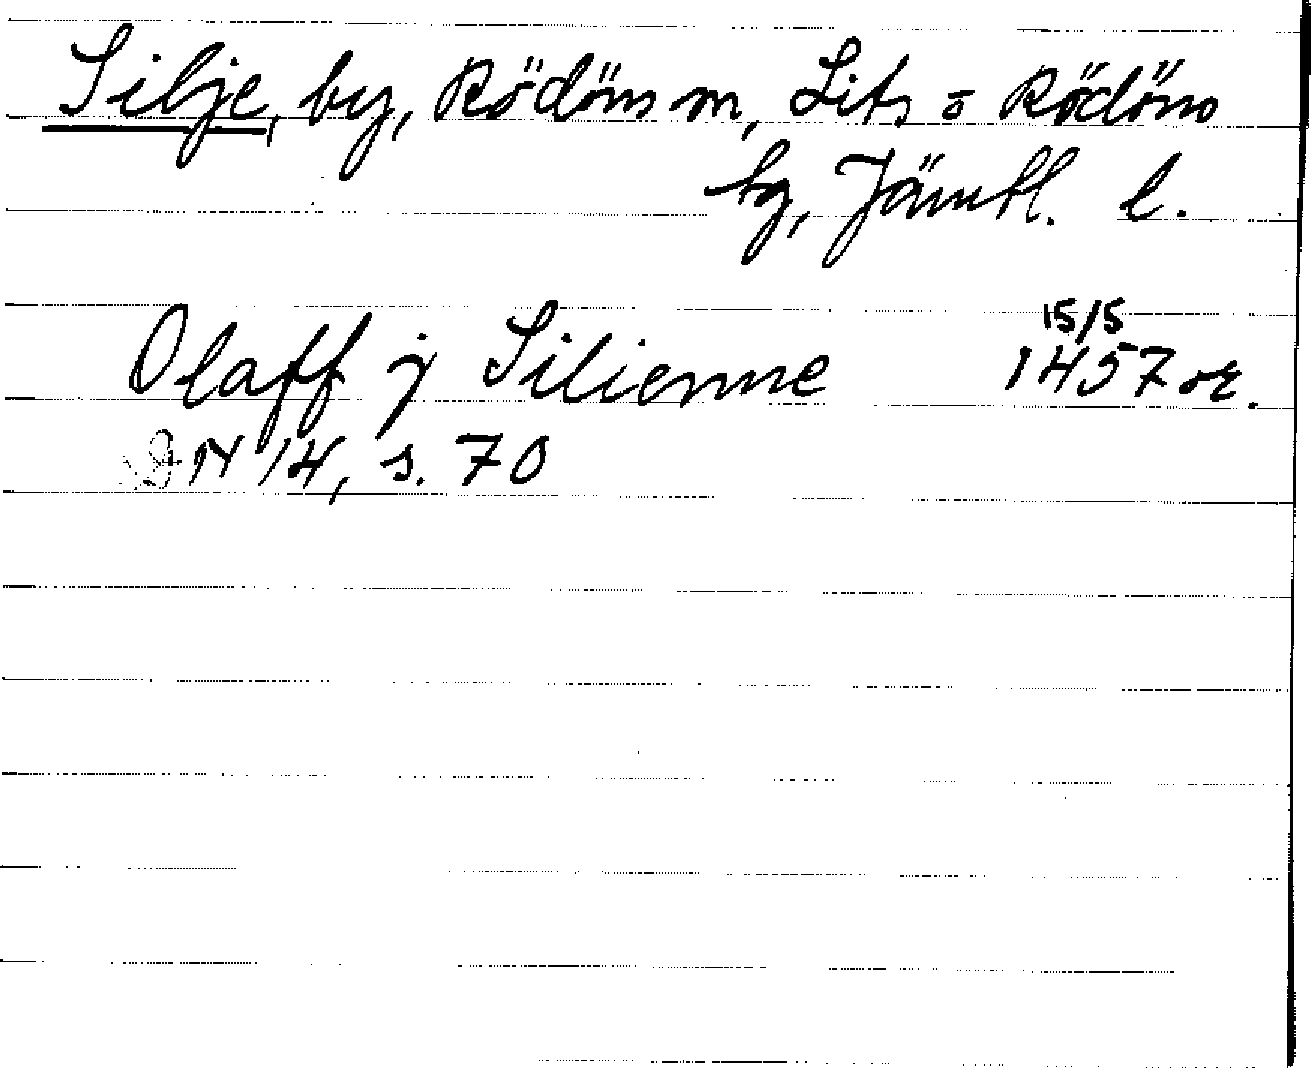 Silje, by, Rödöns sn, Lits o Rödöns
tg, Jämtl. l.
15/5
Olaff j Silienne 1457 or.
DN 14, s. 70